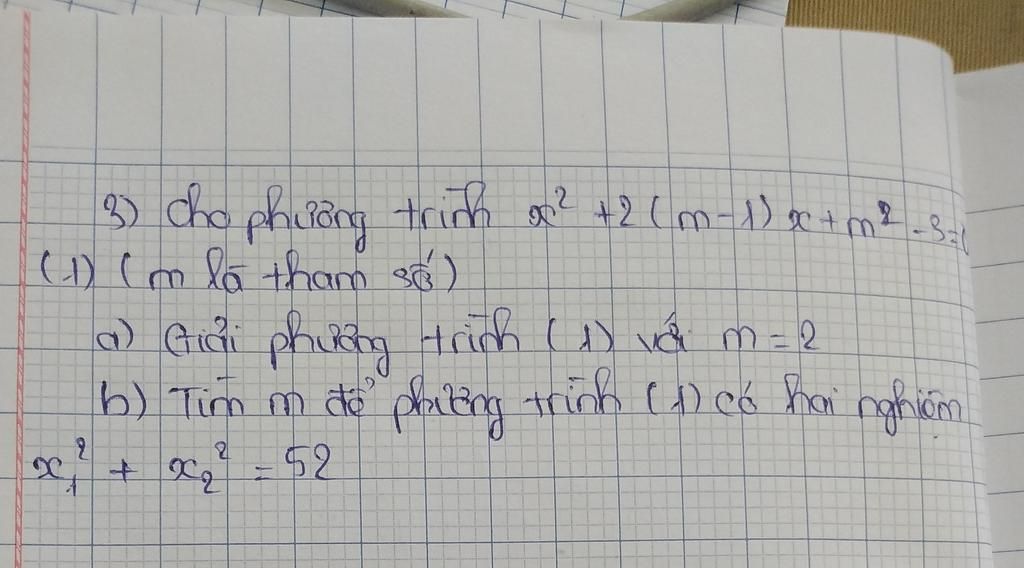 3) Cho phương trình x² + 2(m-1)x + m² - 3 = 0
(1) (m là tham số)
a) Giải phương trình (1) với m = 2
b) Tìm m để phương trình (1) có hai nghiệm
x₁² + x₂² = 52